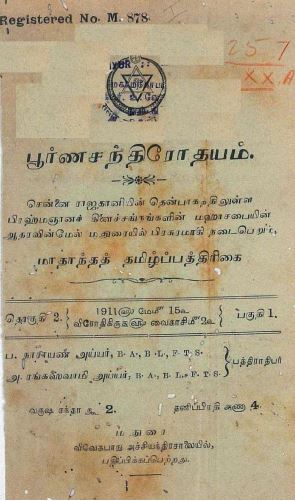 Registered No. M. 878.
257
XX.A
பூர்ணசந்திரோதயம்.
சென்னை ராஜதானியின் தென்பாகத்திலுள்ள
பிரஹ்மஞானக் கிளைச்சங்கங்களின் மஹாசபையின்
ஆதரவின்மேல் மதுரையில் பிரசுரமாகி நடைபெறும்,
மாதாந்தத் தமிழ்ப்பத்திரிகை
தொகுதி 2. 1911௵ மேமீ 15௳ பகுதி 1.
விரோதிகிருது௵ வைகாசிமீ 2௳
ப. நாராயண அய்யர், B. A., B. L., F. T. S.
பத்திராதிபர்
அ. ரங்கஸ்வாமி அய்யர், B. A., B. L., F. T. S.
வருஷ சந்தா ரூ 2. தனிப்பிரதி அணா 4.
மதுரை
விவேகபாநு அச்சியந்திரசாலையில்,
பதிப்பிக்கப்பெற்றது.